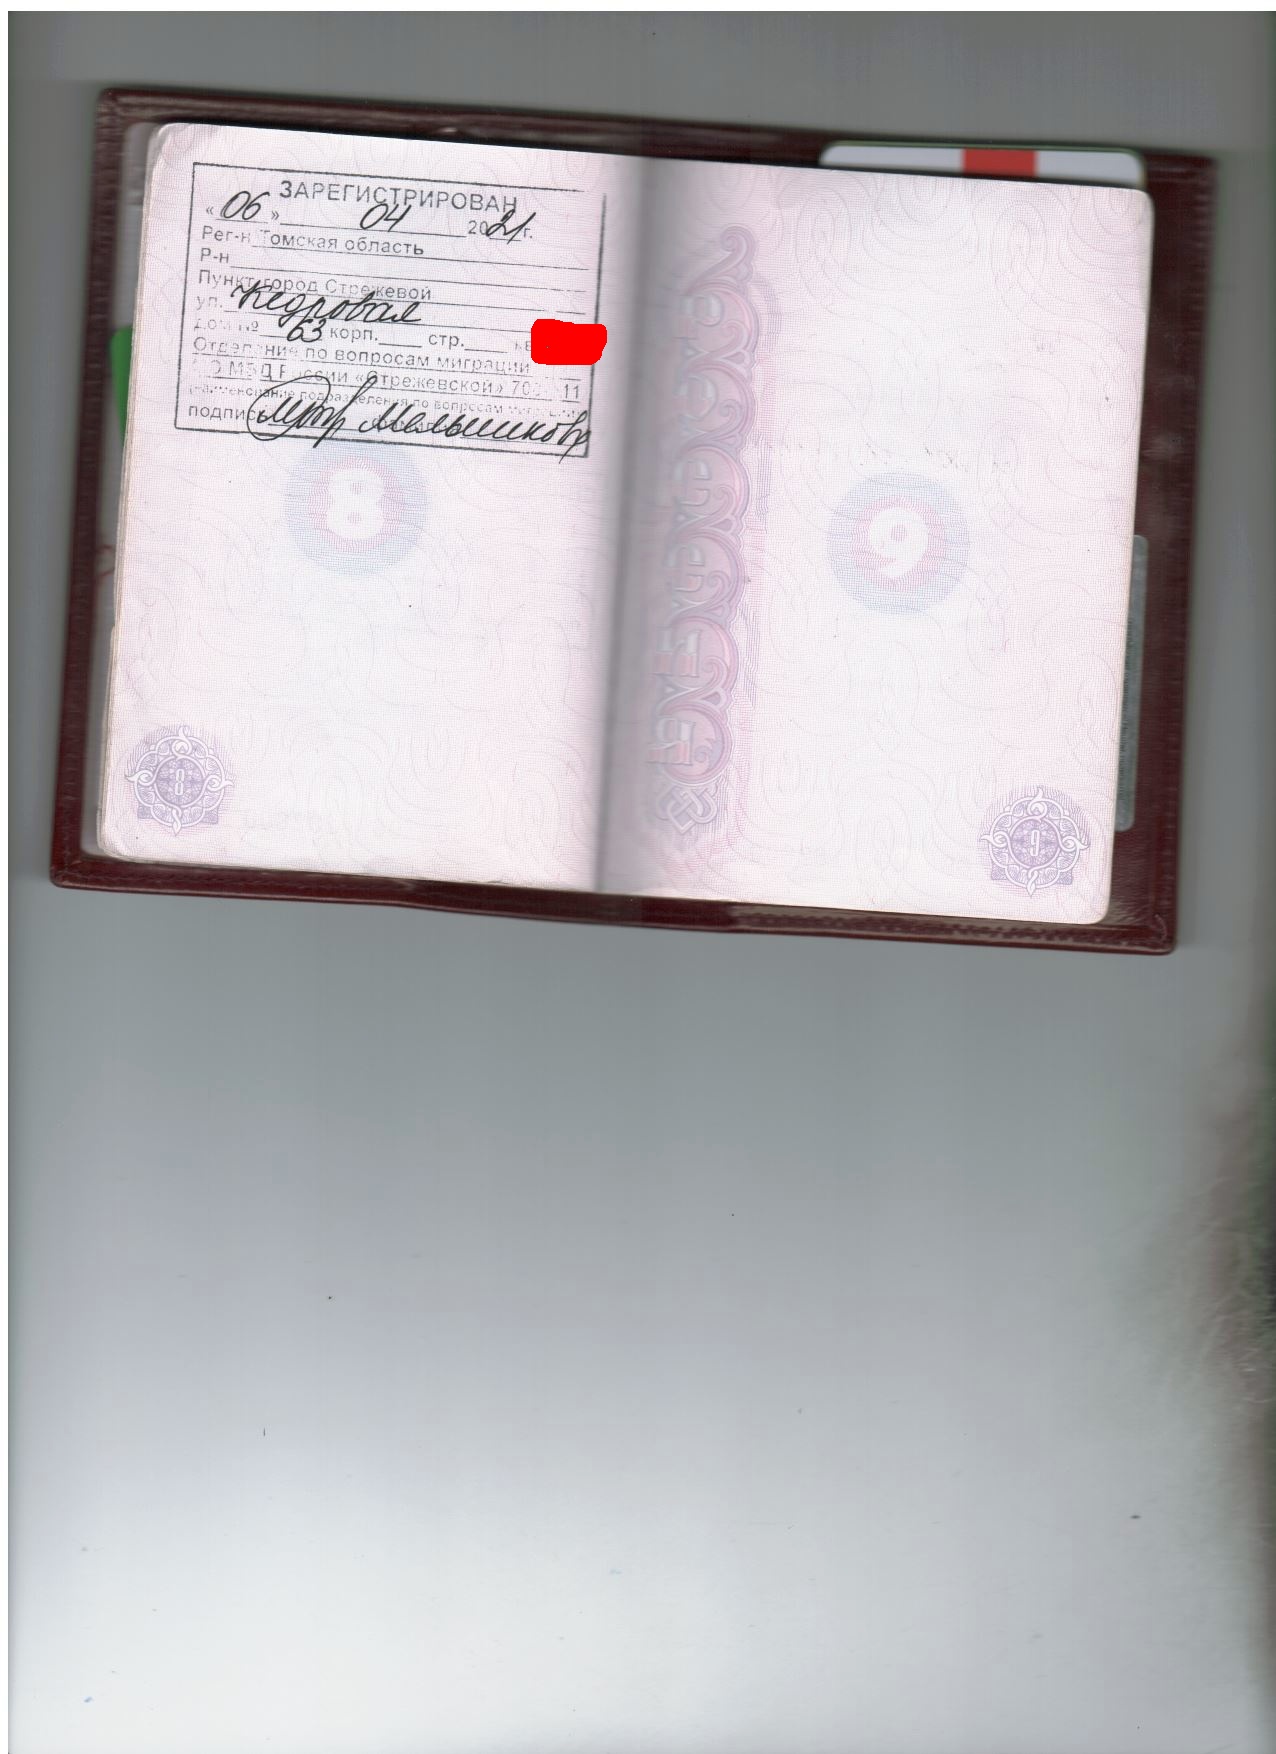 ЗАРЕГИСТРИРОВАН
« 06 » 04 2021г.
Рег-н Томская область
Р-н
Пункт город Стрежевой
ул. Кедровая
дом № 63 корп. стр. кв
Отделение по вопросам миграции
МО МВД России «Стрежевской» 70 11
(наименование подразделения по вопросам миграции)
подпись Мельникова
8
9
8
9